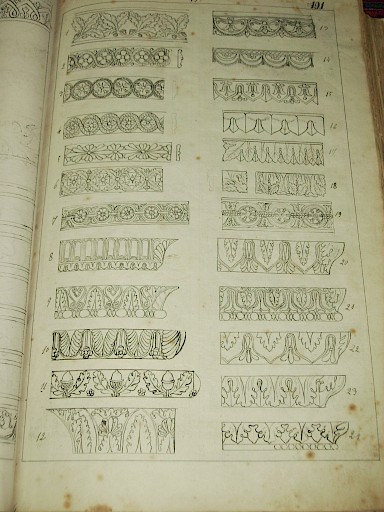 191
1
13
14
15
4
16
5
17
6
18
7
19
8
20
9
21
22
11
23
12
24